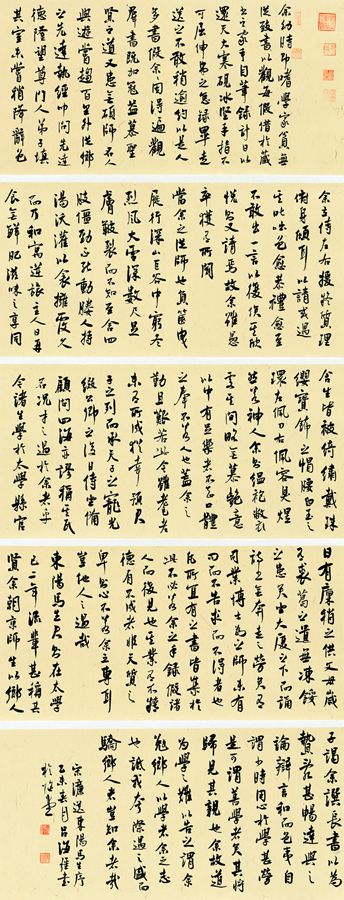 余幼時即嗜學家貧無
從致書以觀每假借於藏
書之家手自筆錄計日以
還天大寒硯冰堅手指不
可屈伸弗之怠錄畢走
送之不敢稍逾約以是人
多書假余因得遍觀
群書既加冠益慕聖
賢之道又患無碩師名人
與遊嘗趨百里外從鄉
之先達執經叩問先達
德隆望尊門人弟子填
其室未嘗稍降辭色
余立侍左右援疑質理
俯身傾耳以請或遇
其叱咄色愈恭禮愈至
不敢出一言以復俟其欣
悅則又請焉故余雖愚
卒獲有所聞
當余之從師也負篋曳
屣行深山巨谷中窮冬
烈風大雪深數尺足
膚皸裂而不知至舍四
肢僵勁不能動媵人持
湯沃灌以衾擁覆久
而乃和寓逆旅主人日再
食無鮮肥滋味之享同
舍生皆被綺繡戴珠
纓寶飾之帽腰白玉之
環左佩刀右佩容臭煜
然若神人余則縕袍敝衣
處其間略無慕艷意
以中有足樂者不知口體
之奉不若人也蓋余之
勤且艱若此今雖耄老
未有所成猶幸預君
子之列而承天子之寵光
綴公卿之後日侍坐備
顧問四海亦謬稱其氏
名況才之過於余者乎
今諸生學於太學縣官
日有廩稍之供父母歲
有裘葛之遺無凍餒
之患矣坐大廈之下而誦
詩書無奔走之勞矣有
司業博士為之師未有
問而不告求而不得者也
凡所宜有之書皆集於
此不必若余之手錄假諸
人而後見也其業有不精
德有不成者非天質之
卑則心不若余之專耳
豈他人之過哉
東陽馬生君則在太學
已二年流輩甚稱其
賢余朝京師生以鄉人
子謁余撰長書以為
贄辭甚暢達與之
論辯言和而色夷自
謂少時用心於學甚勞
是可謂善學者矣其將
歸見其親也余故道
為學之難以告之謂余
勉鄉人以學者余之志
也詆我誇際遇之盛而
驕鄉人者豈知余者哉
宋濂送東陽馬生序
乙未春月呂海雄書